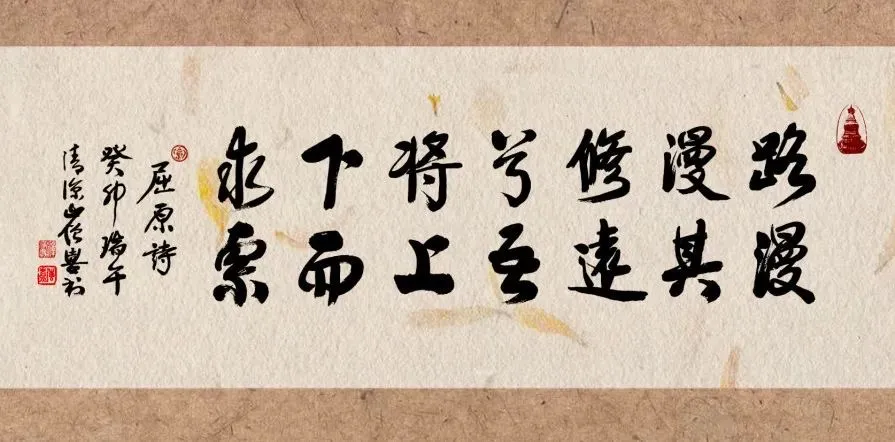 路漫
漫其
修遠
兮吾
将上
下而
求索
屈原詩
癸卯瑞午
清涼山僧